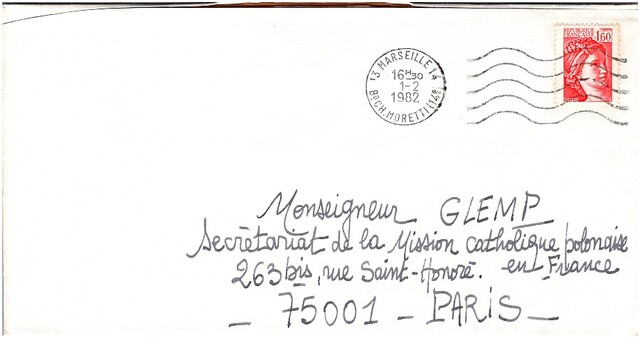 1,60
13 MARSEILLE 14
16H30
1-2
1982
BD CH. MORETTI (14E)
Monseigneur GLEMP
Secrétariat de la Mission catholique polonaise
263 bis, rue Saint-Honoré. en France
_ 75001 _ PARIS _